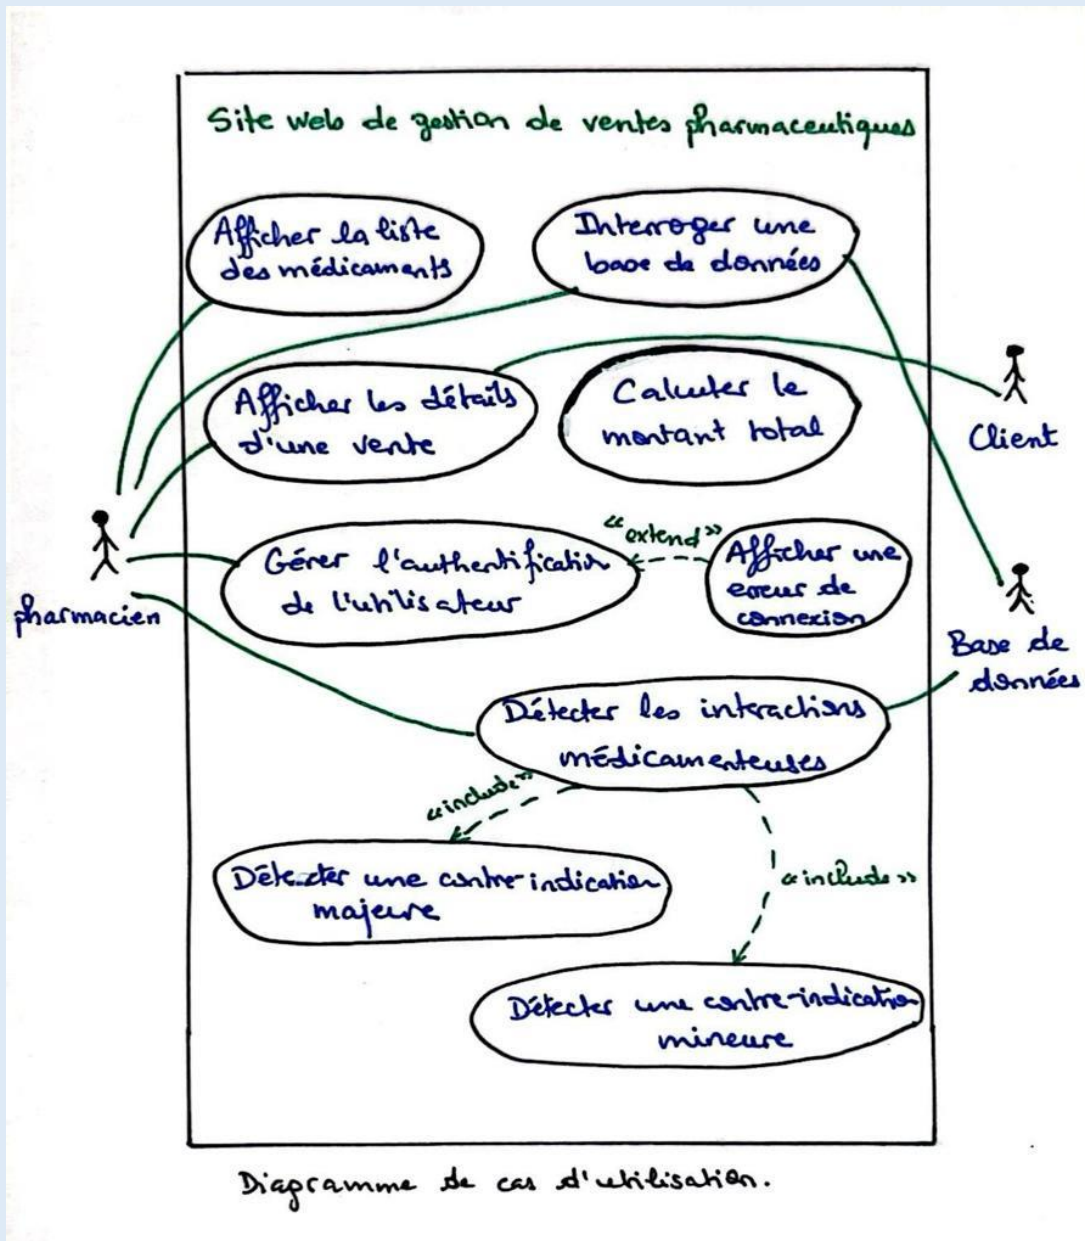 Site web de gestion de ventes pharmaceutiques
Afficher la liste
des médicaments
Interroger une
base de données
Afficher les détails
d'une vente
Calculer le
montant total
Client
Gérer l'authentification
de l'utilisateur
«extend»
Afficher une
erreur de
connexion
pharmacien
Base de
données
Détecter les interactions
médicamenteuses
«include»
Détecter une contre-indication
majeure
«include»
Détecter une contre-indication
mineure
Diagramme de cas d'utilisation.